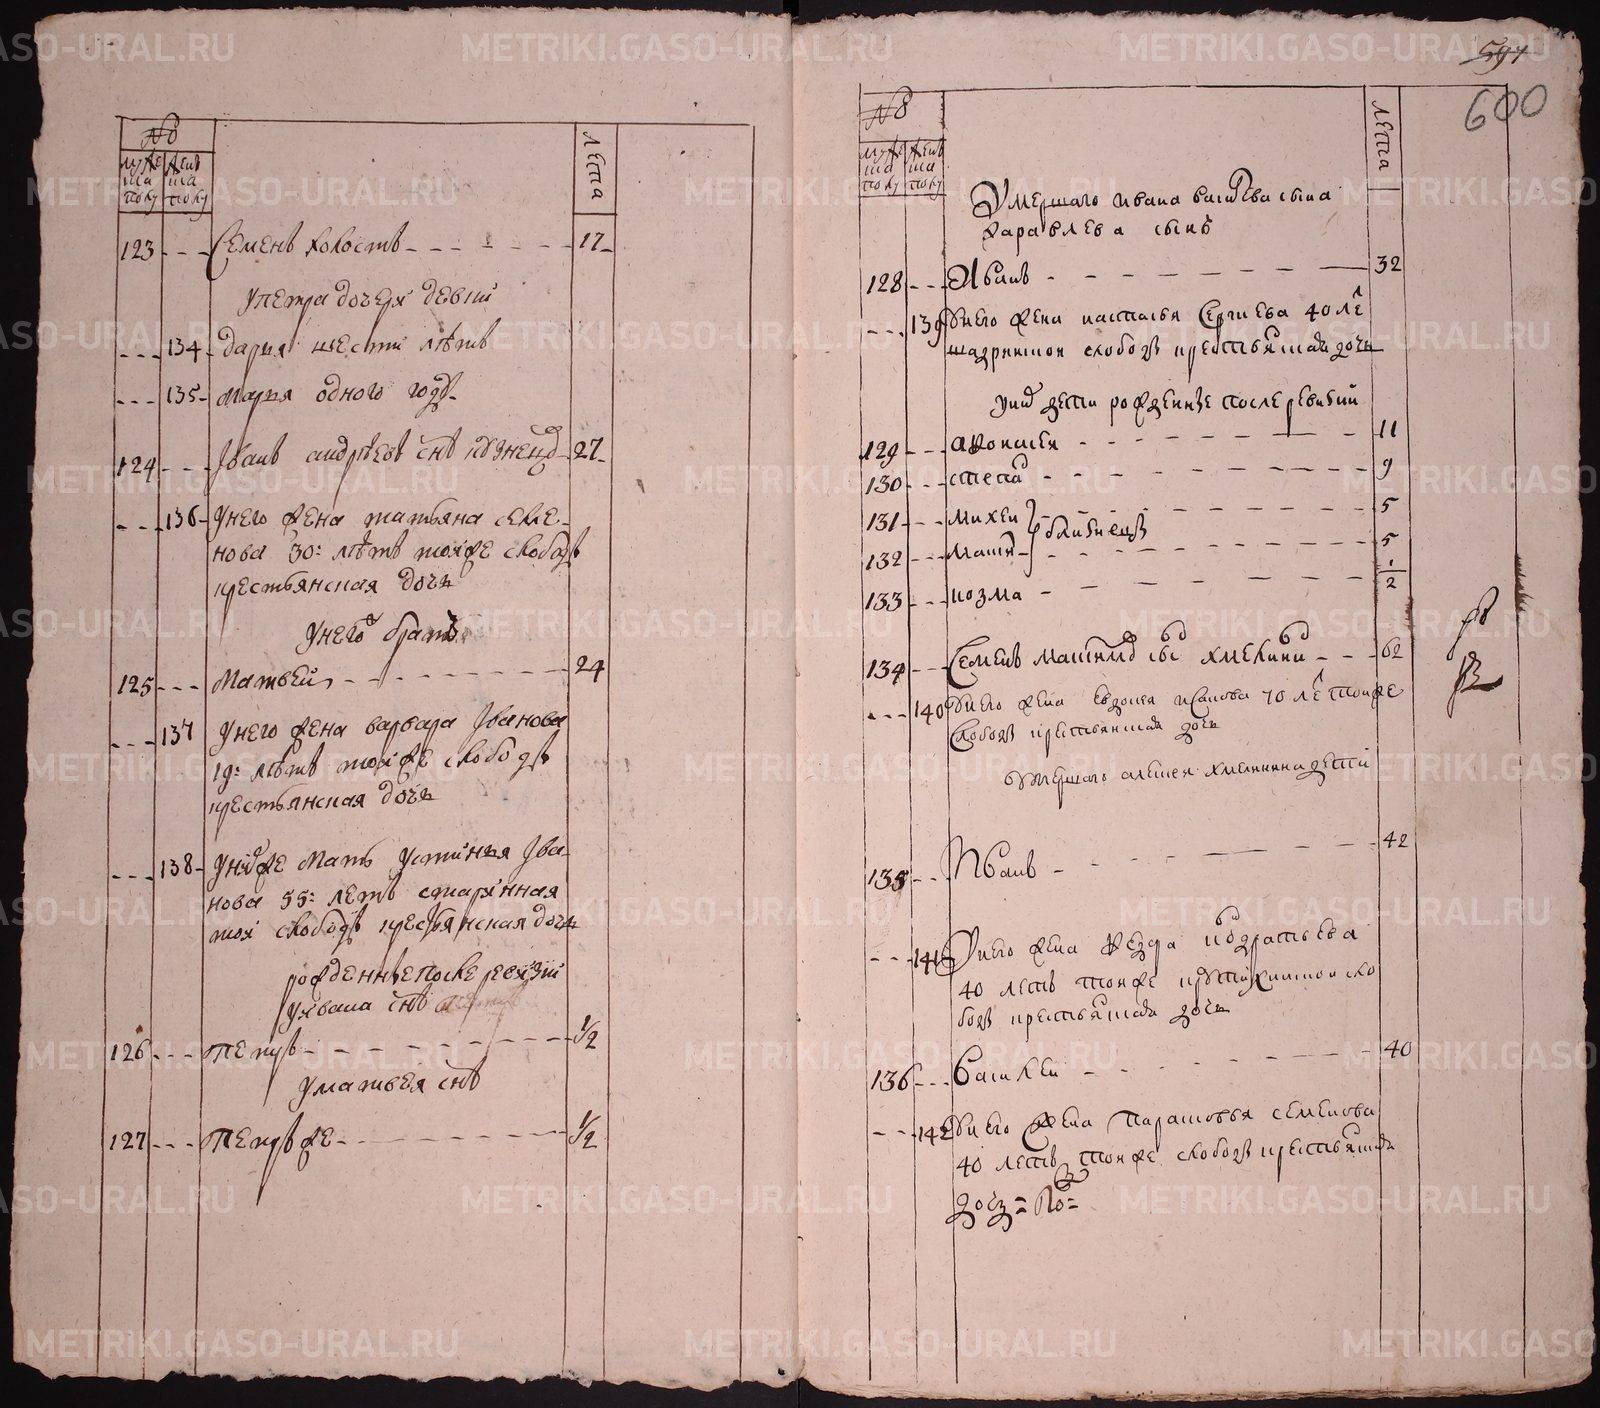 №
мужеска полу
женска полу
лета
123 - - - Семенъ холостъ - - - - - 17
у петра дочери девки
- - - 134 - дарья шести лѣтъ
- - - 135 - марья одного году
124 - - - Iванъ андрѣевъ снъ 27
- - - 136 - у него жена татьяна семе-
нова 30: лѣтъ тоиже слободы
крестьянская дочь
у него братъ
125 - - - Матвей - - - - - 24
- - - 137 у него жена варвара Iванова
19: лѣтъ тоиже слободы
крестьянская дочь
- - - 138 - у нихже мать устинья Iва-
нова 55: летъ старинная
тои слободы крестьянская дочь
рожденные после ревизiи
у ивана снъ
126 - - - петръ - - - - - 1/2
у матвея снъ
127 - - - петръ же - - - - - 1/2
597
600
№
мужеска полу
женска полу
лета
Умершаго ивана сына
каравлева сынъ
128 - - - Иванъ - - - - - 32
- - - 139 у него жена настасья Сергиева 40 ле
слободы крестьянская дочь
у них дети рожденные после ревизии
129 - - - афонасеи - - - - - 11
130 - - - степан - - - - - 9
131 - - - михеи - - - - - 5
близнецы
132 - - - - - - - - 5
133 - - - козма - - - - - 1/2
134 - - - Семенъ сынъ хмелинин - - - 62
- - - 140 у него жена евдокея 70 ле тоиже
слободы крестьянская дочь
Умершаго алексея хмелинина дети
135 - - - Иванъ - - - - - 42
- - - 141 У него жена федора кодратьева
40 летъ тоиже сло
боды крестьянская дочь
136 - - - василеи - - - - - 40
- - - 142 у него жена парасковья семенова
40 летъ тоиже слободы крестьянская
дочь